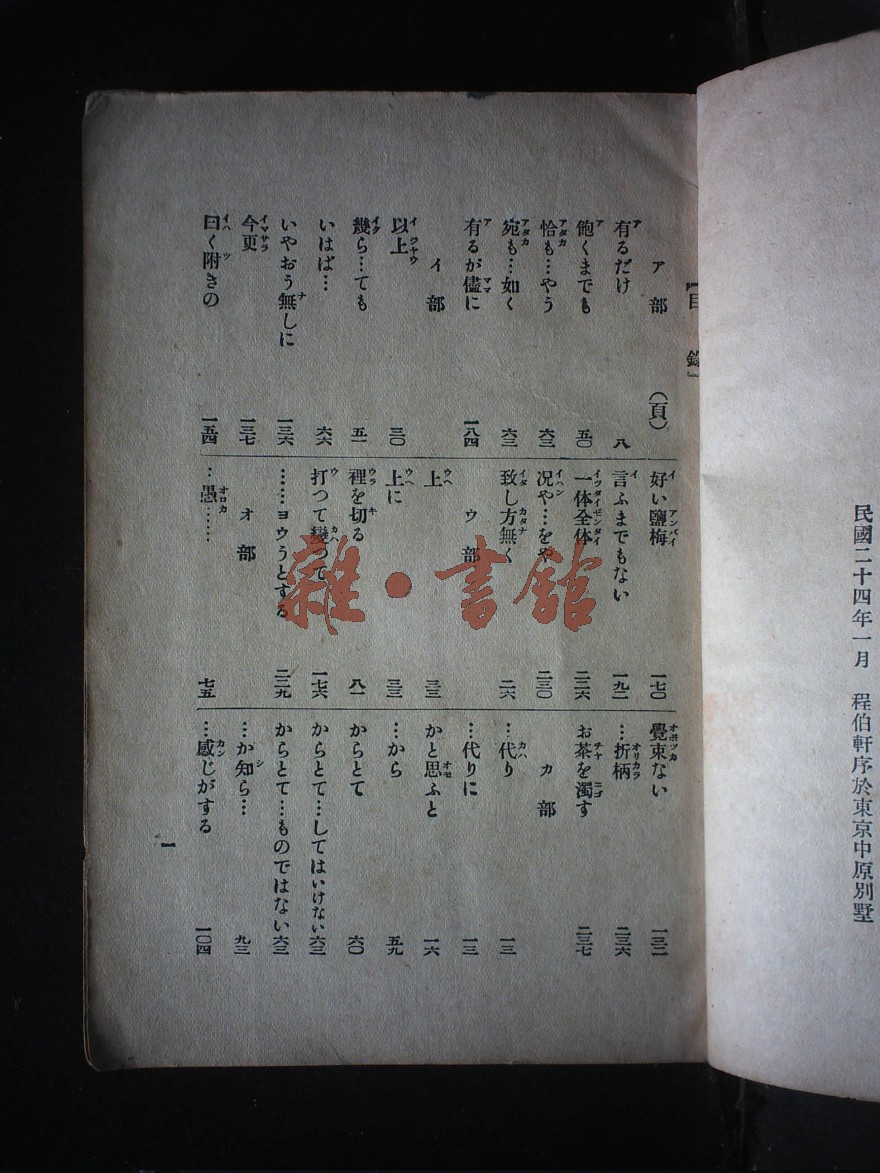 民國二十四年一月　程伯軒序於東京中原別墅
『目　錄』
ア部　（頁）
有るだけ　八
飽くまでも　五〇
恰も…やう　六三
宛も…如く　六三
有るが儘に　一八四
イ部
以上　三〇
幾ら…ても　五一
いはば…　六六
いやおう無しに　一三六
今更　一三七
曰く附きの　一五四
好い鹽梅　一七〇
言ふまでもない　一九二
一体全体　二三六
况や…をや　二三〇
致し方無く　二六
ウ部
上　三三
上に　三三
裡を切る　八一
打つて變つて　一七六
……ヨウうとする　二三九
オ部
…愚……　七五
覺束ない　一三二
…折柄　二三六
お茶を濁す　二三七
カ部
…代り　一三
…代りに　一三
かと思ふと　一六
…から　五九
からとて　六〇
からとて…してはいけない　六三
からとて…ものではない　六三
…か知ら…　九三
…感じがする　一〇四
一
雜·書館